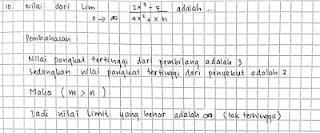 10. Nilai dari Lim 2x³ - 5 adalah ...
x → ∞ 4x² + x + 1
Pembahasan
Nilai pangkat tertinggi dari pembilang adalah 3
Sedangkan nilai pangkat tertinggi dari penyebut adalah 2
Maka (m > n)
Jadi nilai limit yang benar adalah ∞ (tak terhingga)